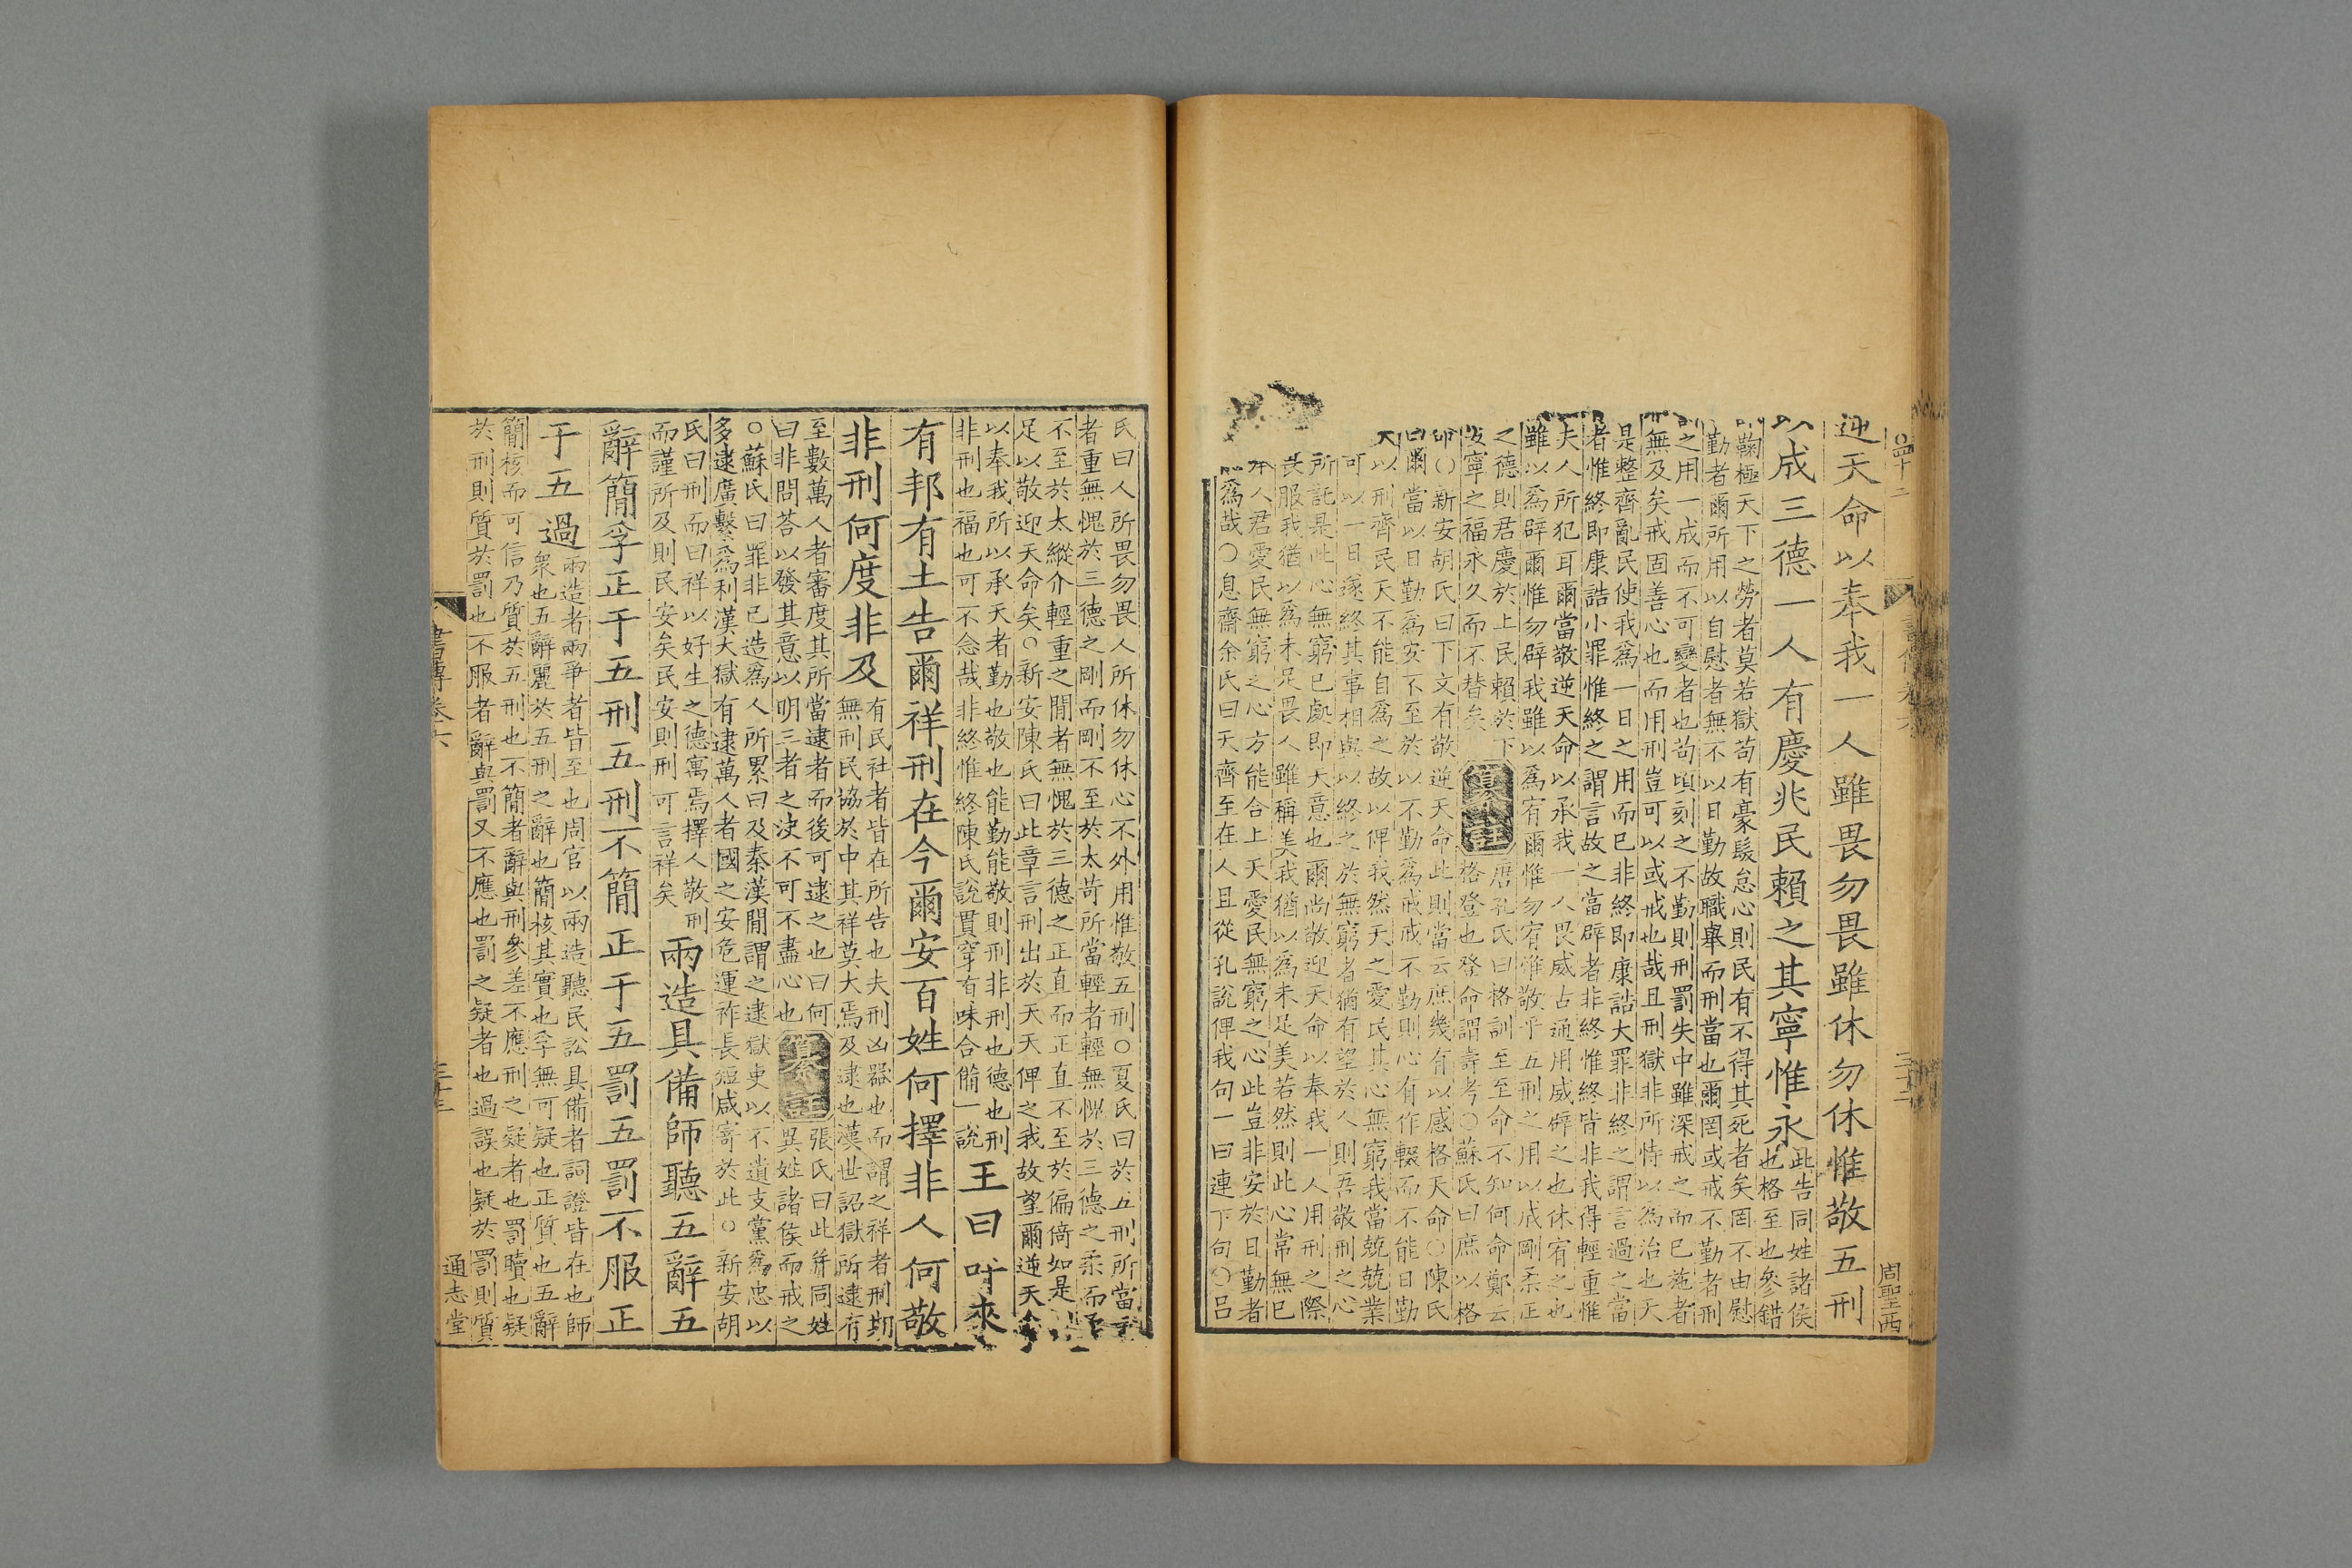 迎天命以奉我一人雖畏勿畏雖休勿休惟敬五刑
以成三德一人有慶兆民賴之其寧惟永
此告同姓諸侯
也格至也參錯
鞠極天下之勞者莫若獄苟有毫髮怠心則民有不得其死者矣罔不由慰
勤者爾所用以自慰者無不以日勤故職舉而刑當也爾罔或戒不勤者刑
之用一成而不可變者也苟頃刻之不勤則刑罰失中雖深戒之而已施者
無及矣戒固善心也而用刑豈可以或戒也哉且刑獄非所恃以為治也天
是整齊亂民使我為一日之用而已非終即康誥大罪非終之謂言過之當
者惟終即康誥小罪惟終之謂言故之當辟者非終惟終皆非我得輕重惟
夫人所犯耳爾當敬逆天命以承我一人畏威古通用威辟之也休宥之也
雖以為辟爾惟勿辟我雖以為宥爾惟勿宥惟敬乎五刑之用以成剛柔正
之德則君慶於上民賴於下
安寧之福永久而不替矣
纂註
唐孔氏曰格訓至至命不知何命鄭云
格登也登命謂壽考○蘇氏曰庶以格
命○新安胡氏曰下文有敬逆天命此則當云庶幾有以感格天命○陳氏
曰爾當以日勤為安不至於以不勤為戒戒不勤則心有作輟而不能日勤
天以刑齊民天不能自為之故以俾我然天之愛民其心無窮我當兢兢業
可以一日遂終其事相與以終之於無窮者猶有望於人則吾敬刑之心
所託是此心無窮已處即天意也爾尚敬迎天命以奉我一人用刑之際
畏服我猶以為未足畏人雖稱美我猶以為未足美若然則此心常無已
人君愛民無窮之心方能合上天愛民無窮之心此豈非安於日勤者
為哉○息齋余氏曰天齊至在人且從孔說俾我句一曰連下句○呂
周聖西
氏曰人所畏勿畏人所休勿休心不外用惟敬五刑○夏氏曰於五刑所當
者重無愧於三德之剛而剛不至於太苛所當輕者輕無愧於三德之柔而
不至於太縱介輕重之間者無愧於三德之正直而正直不至於偏倚如是
足以敬迎天命矣○新安陳氏曰此章言刑出於天天俾之我故望爾逆天
以奉我所以承天者勤也敬也能勤能敬則刑非刑也德也刑
非刑也福也可不念哉非終惟終陳氏說貫穿有味合備一說
王曰吁來
有邦有土告爾祥刑在今爾安百姓何擇非人何敬
非刑何度非及
有民社者皆在所告也夫刑凶器也而謂之祥者刑期
無刑民協於中其祥莫大焉及逮也漢世詔獄所逮有
至數萬人者審度其所當逮者而後可逮之也曰何
曰非問荅以發其意以明三者之決不可不盡心也
纂註
張氏曰此并同姓
異姓諸侯而戒之
○蘇氏曰罪非己造為人所累曰及秦漢間謂之逮獄吏以不遺支黨為忠以
多逮廣繫為利漢大獄有逮萬人者國之安危運祚長短咸寄於此○新安胡
氏曰刑而曰祥以好生之德寓焉擇人敬刑
而謹所及則民安矣民安則刑可言祥矣
兩造具備師聽五辭五
辭簡孚正于五刑五刑不簡正于五罰五罰不服正
于五過
兩造者兩爭者皆至也周官以兩造聽民訟具備者詞證皆在也師
衆也五辭麗於五刑之辭也簡核其實也孚無可疑也正質也五辭
簡核而可信乃質於五刑也不簡者辭與刑參差不應刑之疑者也罰贖也疑
於刑則質於罰也不服者辭與罰又不應也罰之疑者也過誤也疑於罰則質
書傳卷六
三十三
通志堂